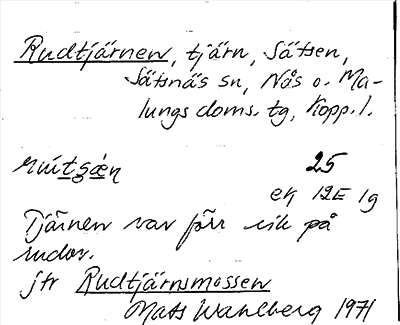 Rudtjärnen, tjärn, Sätsen,
Säfsnäs sn, Nås o. Ma-
lungs doms. tg, Kopp. l.
25
ek 12E 1g
Tjärnen var förr rik på
rudor.
jfr Rudtjärnsmossen
Mats Wahlberg 1971